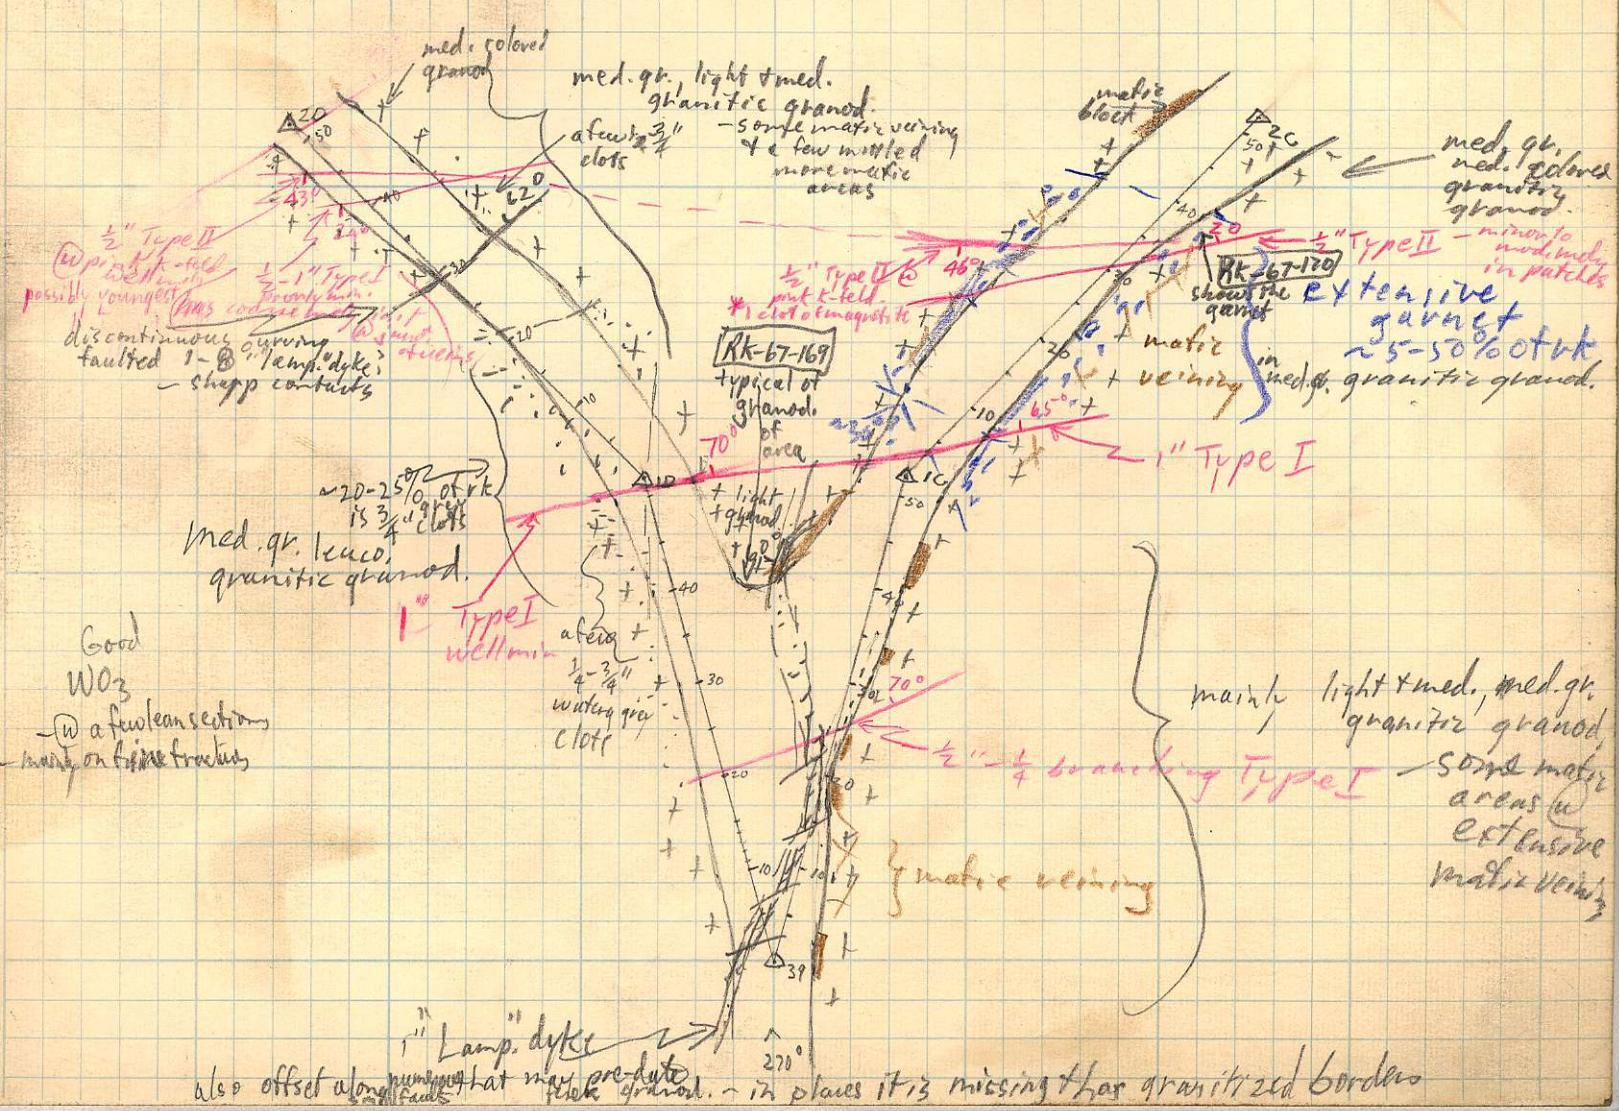 med. colored
granod
med. gr., light + med.
granitic granod.
- some mafic veining
+ a few mottled
more mafic
areas
a few
clots
mafic
block
med. gr.
med. colored
granitic
granod.
△20
50
40
30
20
10
43°
62°
△2C
50
40
30
20
10
½" Type II
possibly youngest
½-1" Type I
poorly min.
discontinuous curving
faulted 1-8" "lamp." dyke
- sharp contacts
½" Type II @
pink K-feld.
* 1 clot of magnetite
46°
20
½" Type II - minor to
mod. min.
in patches
RK-67-170
shows the
garnet
extensive
garnet
~5-50% of rk
in med. gr. granitic granod.
mafic
veining
RK-67-169
typical of
granod.
of
area
70°
65°
1" Type I
△1D
△1C
50
light
granod.
~20-25% of rk
is ¾" grey clots
med. gr. leuco.
granitic granod.
1" Type I
well min
a few
¼-¾"
watery grey
clots
40
30
20
10
40
30
20
10
Good
WO3
- w a few lean sections
- mainly on fine fractures
70°
½"-¼ branching Type I
mainly light + med., med. gr.
granitic granod,
- some mafic
areas w
extensive
mafic veining
mafic veining
△39
1" "Lamp." dyke
270°
also offset along numerous small faults that may pre-date granod. - in places it is missing + has granitized borders